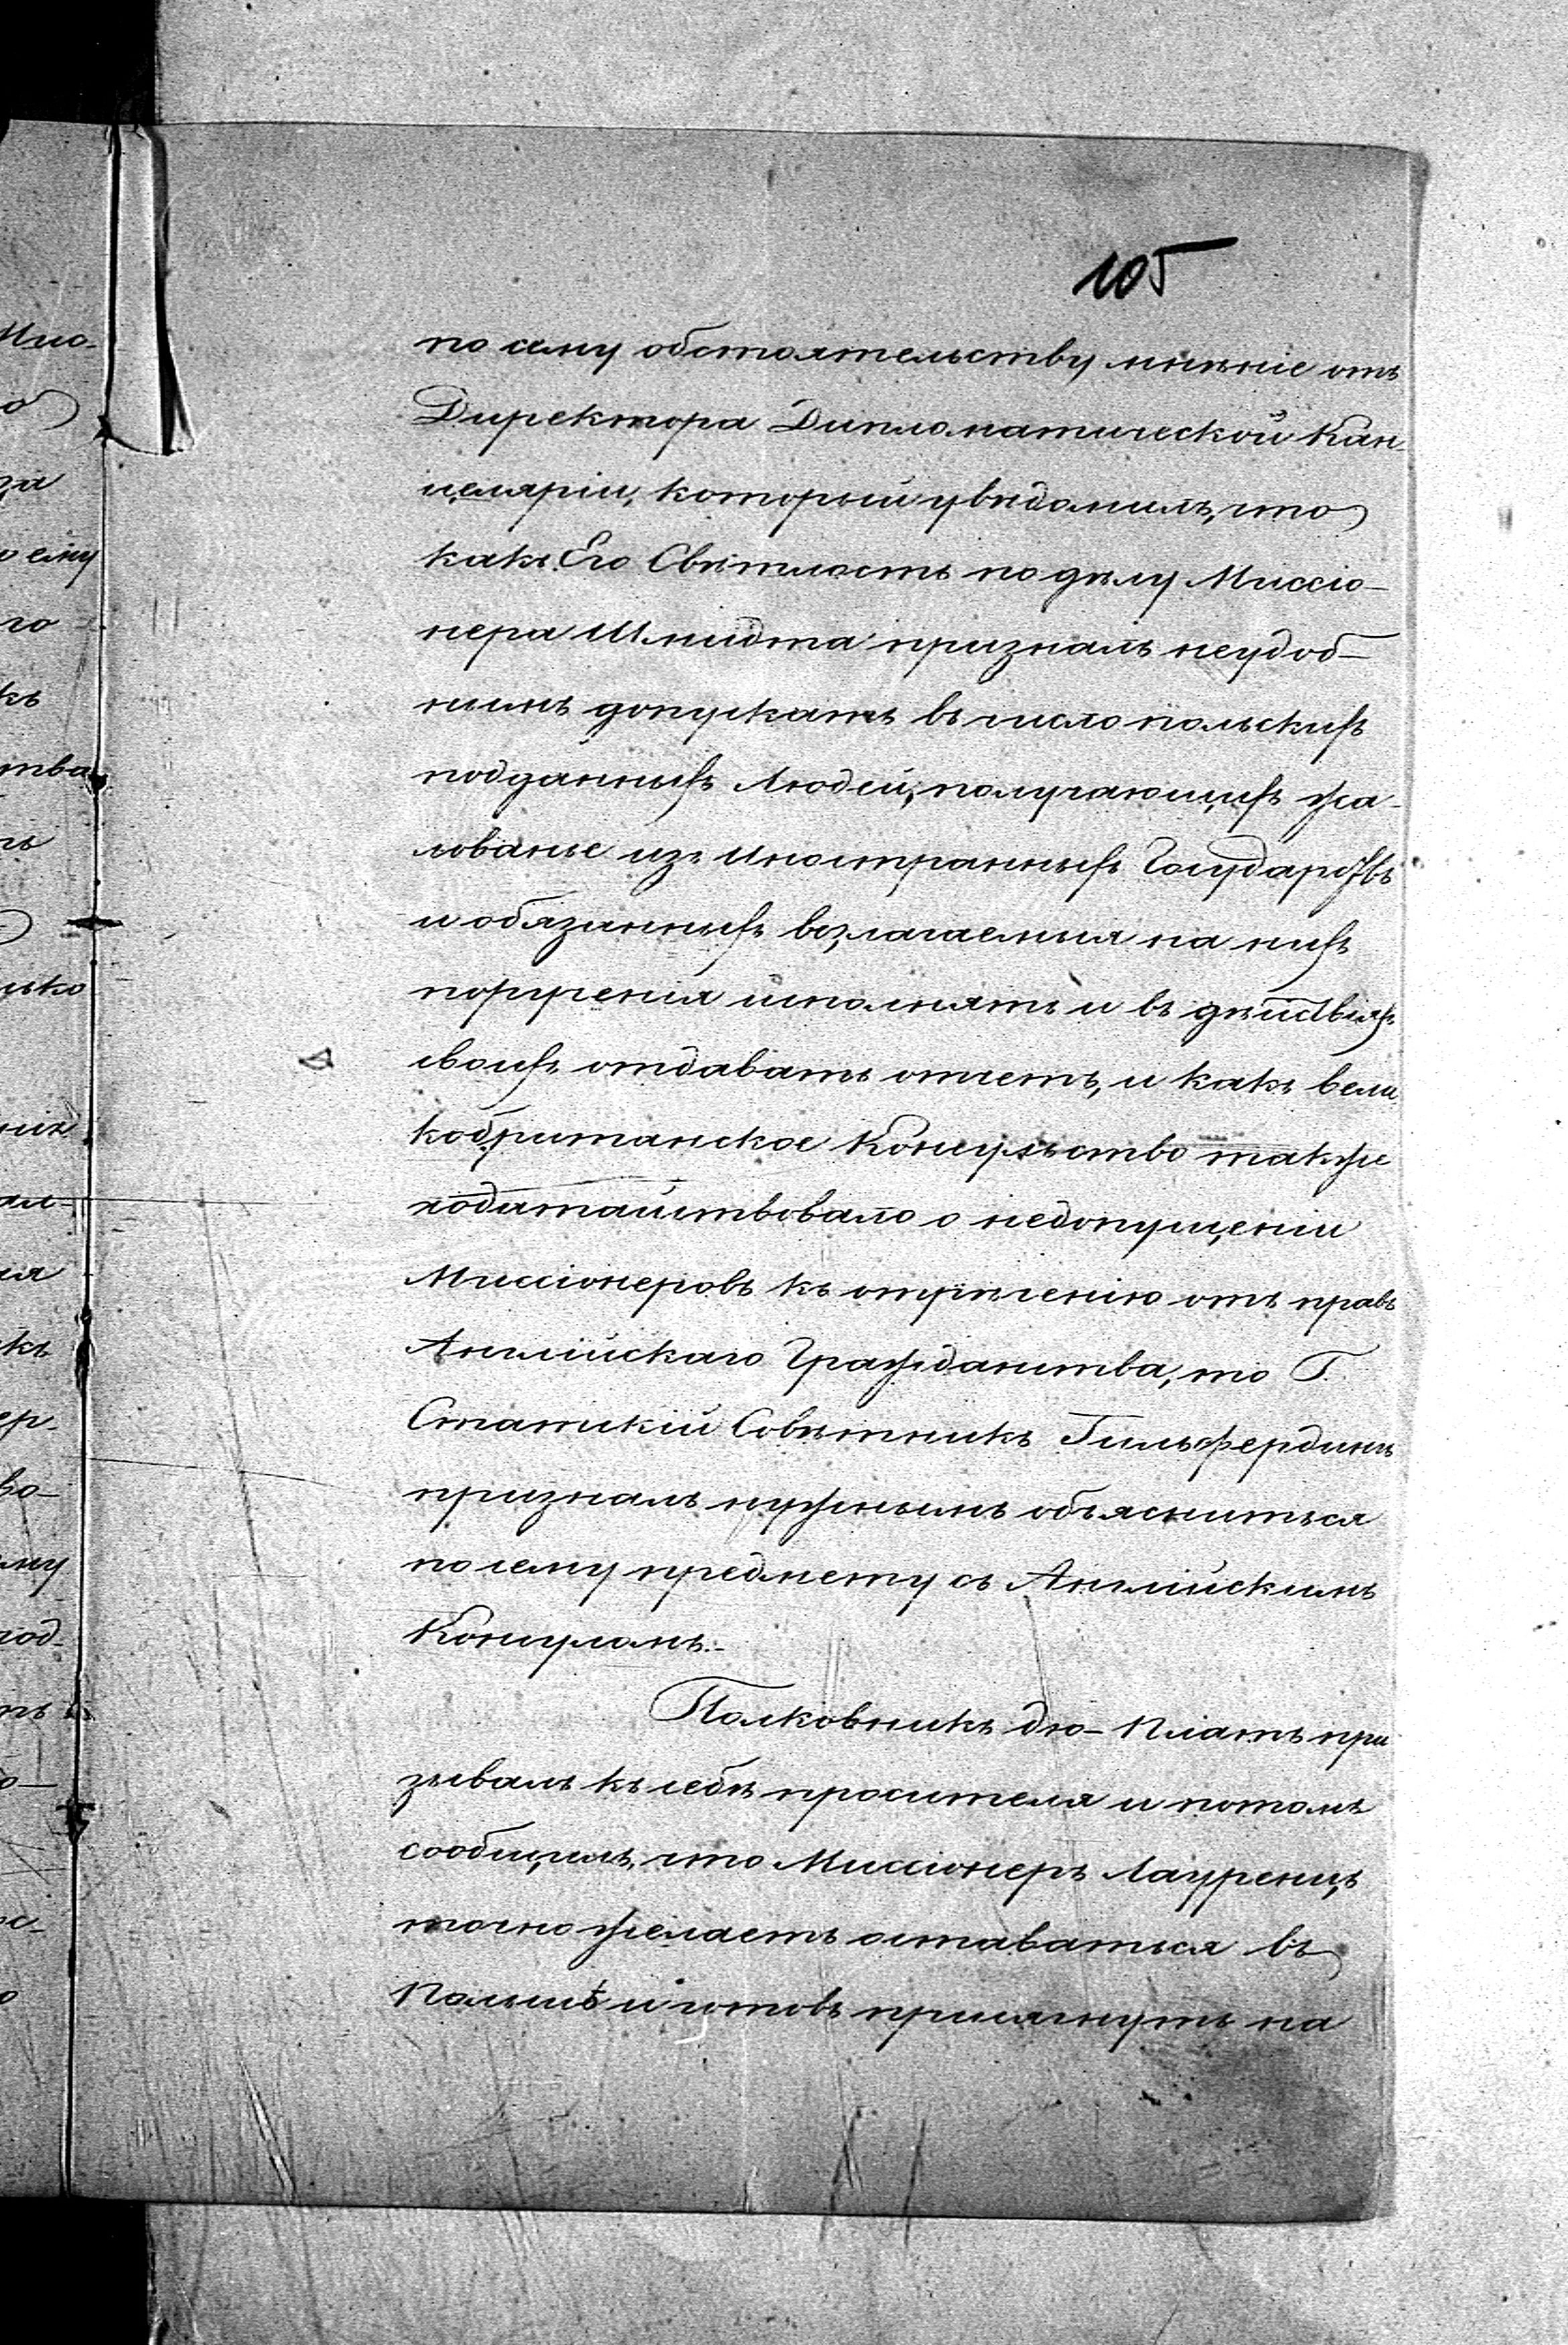 105
по сему обстоятельству мнѣніе отъ
Директора Дипломатической Кан-
целяріи, который увѣдомилъ, что
какъ Его Свѣтлость по дѣлу Миссіо-
нера Шмидта призналъ неудоб-
нымъ допускать въ число польскихъ
подданныхъ людей, получающихъ жа-
лованье изъ Иностранныхъ Государствъ
и обязанныхъ возлагаемыя на нихъ
порученія исполнять и въ дѣйствіяхъ
своихъ отдавать отчетъ, и какъ Вели-
кобританское Консульство также
ходатайствовало о недопущеніи
Миссіонеровъ къ отрѣченію отъ правъ
Англійскаго Гражданства, то Г.
Статскій Совѣтникъ Гильфердингъ
призналъ нужнымъ объясниться
по сему предмету съ Англійскимъ
Консуломъ.-
Полковникъ дю-Платъ при
зывалъ къ себѣ просителя и потомъ
сообщилъ, что Миссіонеръ Лауренцъ
точно желаетъ оставаться въ
Польшѣ и готовъ присягнуть на